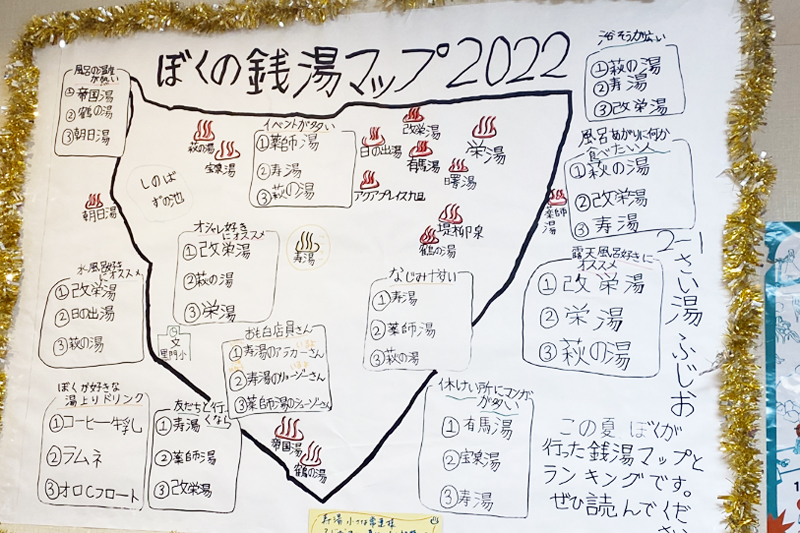 ぼくの銭湯マップ2022
風呂の温度
が熱い
①帝国湯
②鶴の湯
③朝日湯
イベントが多い
①薬師湯
②寿湯
③萩の湯
浴そうが広い
①萩の湯
②寿湯
③改栄湯
風呂あがりに何か
食べたい人
①萩の湯
②改栄湯
③寿湯
萩の湯
宝泉湯
日の出湯
改栄湯
有馬湯
栄湯
曙湯
アクアプレイス旭
堤柳泉
鶴の湯
薬師
湯
朝日湯
しのば
ずの池
寿湯
オシャレ好き
にオススメ
①改栄湯
②萩の湯
③栄湯
水風呂好き
にオススメ
①改栄湯
②日の出湯
③萩の湯
なじみやすい
①寿湯
②薬師湯
③萩の湯
露天風呂好きに
オススメ
①改栄湯
②栄湯
③萩の湯
文
黒門小
おも白店員さん
①寿湯のアラカーさん
②寿湯のリョーゾーさん
③薬師湯のショーゾーさん
ぼくが好きな
湯上りドリンク
①コーヒー牛乳
②ラムネ
③オロCフロート
友だちと行
くなら
①寿湯
②薬師湯
③改栄湯
帝国湯
鶴の湯
休けい所にマンガ
が多い
①有馬湯
②宝泉湯
③寿湯
2-1
さい湯 ふじお
この夏 ぼくが
行った銭湯マップと
ランキングです。
ぜひ読んでくだ
さい